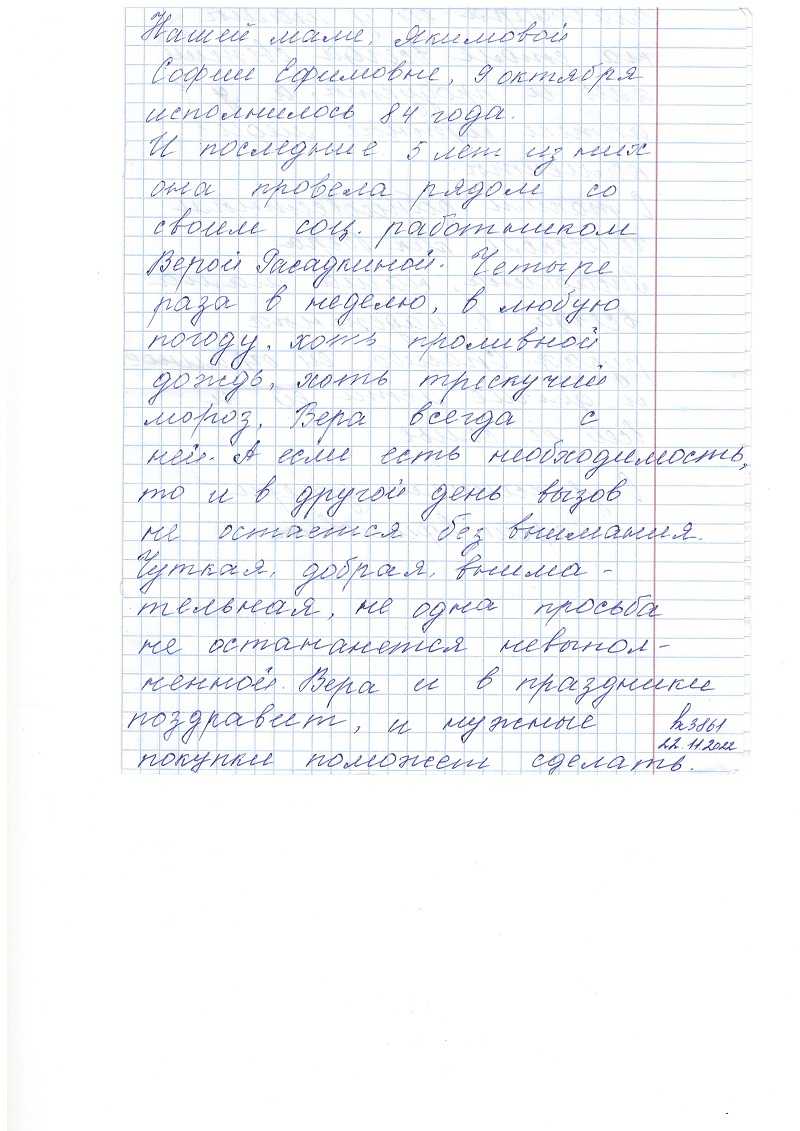 Нашей маме, Якимовой
Софии Ефимовне, 9 октября
исполнилось 84 года.
И последние 5 лет из них
она провела рядом со
своим соц. работником
Верой Расадкиной. Четыре
раза в неделю, в любую
погоду, хоть проливной
дождь, хоть трескучий
мороз, Вера всегда с
ней. А если есть необходимость,
то и в другой день вызов
не остается без внимания.
Чуткая, добрая, внима-
тельная, не одна просьба
не остананется невыпол-
ненной. Вера и в праздники
поздравит, и нужные
покупки поможет сделать.
3861
22.11.2022